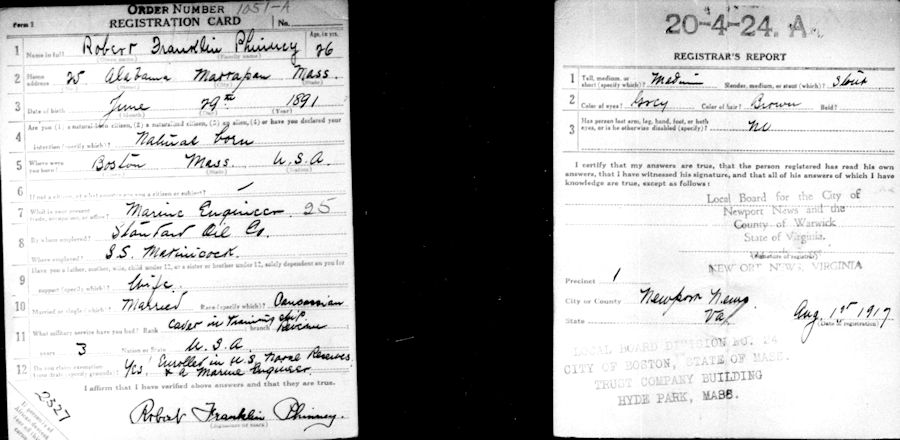 ORDER NUMBER 1051-A
Form 1 REGISTRATION CARD No.
1 Name in full Robert Franklin Phinney Age, in yrs. 26
(Given name) (Family name)
2 Home address 25 Alabama Mattapan Mass.
(State)
3 Date of birth June 29th 1891
(Month) (Day) (Year)
Are you (1) a natural-born citizen, (2) a naturalized citizen, (3) an alien, (4) or have you declared your
4 intention (specify which)? Natural born
5 Where were you born? Boston Mass. U.S.A.
(Town) (State) (Nation)
6 If not a citizen, of what country are you a citizen or subject?
7 What is your present trade, occupation, or office? Marine Engineer 25
8 By whom employed? Standard Oil Co.
Where employed? S.S. Matinicock
9 Have you a father, mother, wife, child under 12, or a sister or brother under 12, solely dependent on you for
support (specify which)? Wife.
10 Married or single (which)? Married Race (specify which)? Caucassian
11 What military service have you had? Rank Cadet in training ship branch Revenue
years 3 Nation or State U.S.A.
12 Do you claim exemption from draft (specify grounds)? Yes! Enrolled in U.S. Naval Reserves
& a Marine Engineer.
I affirm that I have verified above answers and that they are true.
2327
Robert Franklin Phinney.
(Signature or mark)
20-4-24. A.
REGISTRAR'S REPORT
1 Tall, medium, or short (specify which)? Medium Slender, medium, or stout (which)? Stout
2 Color of eyes? Grey Color of hair? Brown Bald?
3 Has person lost arm, leg, hand, foot, or both eyes, or is he otherwise disabled (specify)? No
I certify that my answers are true, that the person registered has read his own
answers, that I have witnessed his signature, and that all of his answers of which I have
knowledge are true, except as follows:
Local Board for the City of
Newport News and the
County of Warwick
State of Virginia.
(Signature of registrar)
NEWPORT NEWS, VIRGINIA
Precinct 1
City or County Newport News
State Va. Aug. 1st 1917
(Date of registration)
LOCAL BOARD DIVISION NO. 24
CITY OF BOSTON, STATE OF MASS.
TRUST COMPANY BUILDING
HYDE PARK, MASS.